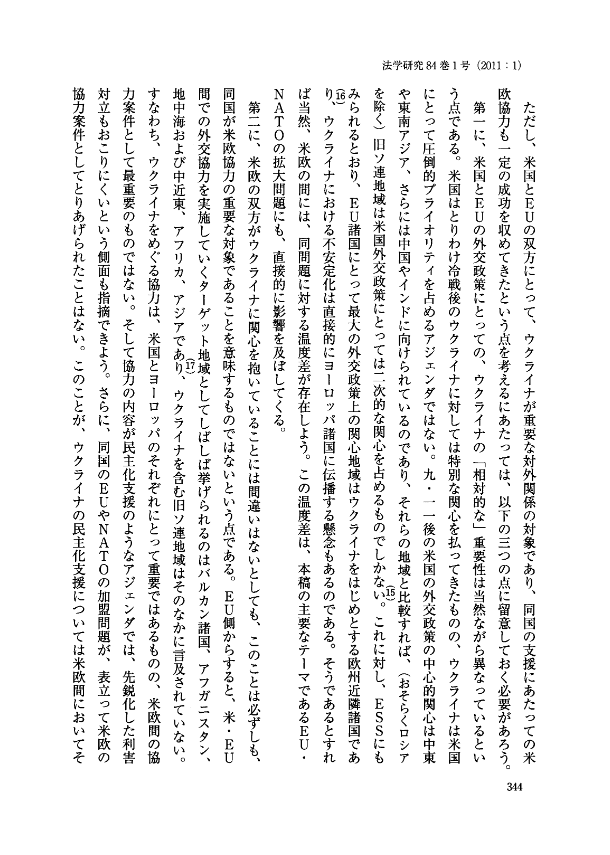 法学研究 84 巻 1 号（2011：1）
ただし、米国とEUの双方にとって、ウクライナが重要な対外関係の対象であり、同国の支援にあたっての米
欧協力も一定の成功を収めてきたという点を考えるにあたっては、以下の三つの点に留意しておく必要があろう。
第一に、米国とEUの外交政策にとっての、ウクライナの「相対的な」重要性は当然ながら異なっているとい
う点である。米国はとりわけ冷戦後のウクライナに対しては特別な関心を払ってきたものの、ウクライナは米国
にとって圧倒的プライオリティを占めるアジェンダではない。九・一一後の米国の外交政策の中心的関心は中東
や東南アジア、さらには中国やインドに向けられているのであり、それらの地域と比較すれば、（おそらくロシア
を除く）旧ソ連地域は米国外交政策にとっては二次的な関心を占めるものでしかない(15)。これに対し、ESSにも
みられるとおり(16)、EU諸国にとって最大の外交政策上の関心地域はウクライナをはじめとする欧州近隣諸国であ
り、ウクライナにおける不安定化は直接的にヨーロッパ諸国に伝播する懸念もあるのである。そうであるとすれ
ば当然、米欧の間には、同問題に対する温度差が存在しよう。この温度差は、本稿の主要なテーマであるEU・
NATOの拡大問題にも、直接的に影響を及ぼしてくる。
第二に、米欧の双方がウクライナに関心を抱いていることには間違いはないとしても、このことは必ずしも、
同国が米欧協力の重要な対象であることを意味するものではないという点である。EU側からすると、米・EU
間での外交協力を実施していくターゲット地域としてしばしば挙げられるのはバルカン諸国、アフガニスタン、
地中海および中近東、アフリカ、アジアであり(17)、ウクライナを含む旧ソ連地域はそのなかに言及されていない。
すなわち、ウクライナをめぐる協力は、米国とヨーロッパのそれぞれにとって重要ではあるものの、米欧間の協
力案件として最重要のものではない。そして協力の内容が民主化支援のようなアジェンダでは、先鋭化した利害
対立もおこりにくいという側面も指摘できよう。さらに、同国のEUやNATOの加盟問題が、表立って米欧の
協力案件としてとりあげられたことはない。このことが、ウクライナの民主化支援については米欧間においてそ
344